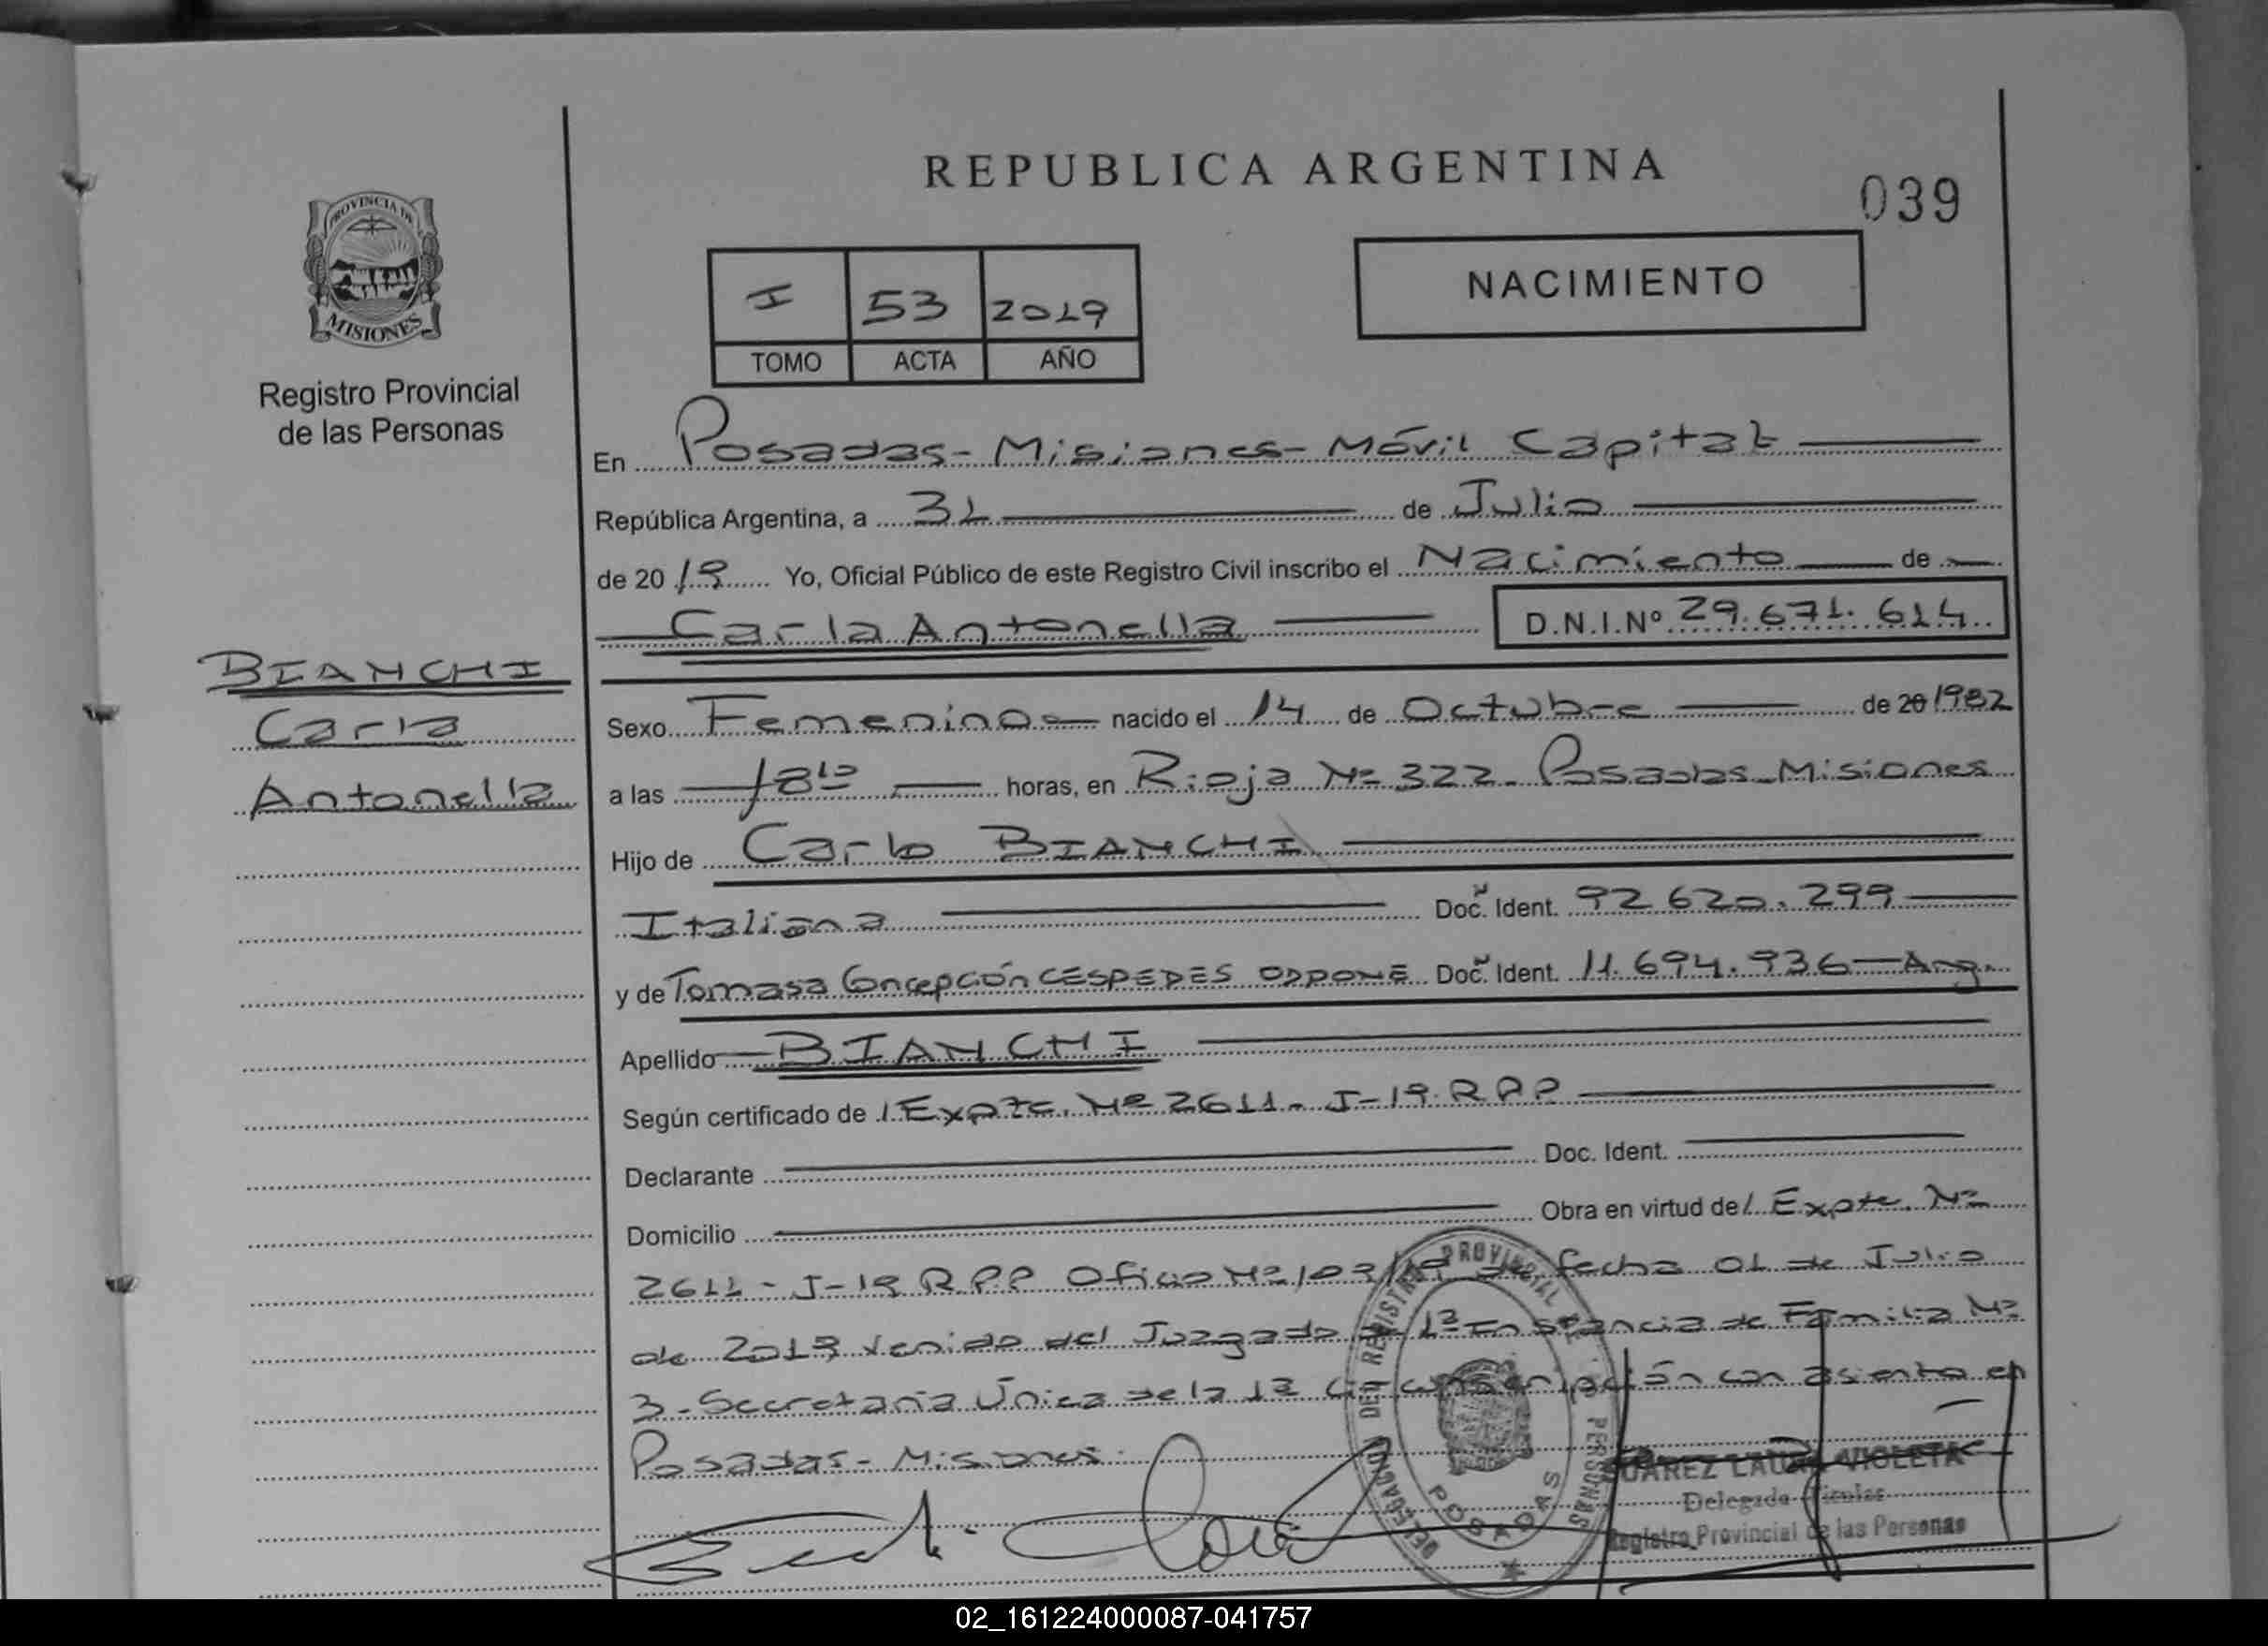 REPUBLICA ARGENTINA
039
PROVINCIA DE
MISIONES
Registro Provincial
de las Personas
I 53 2019
TOMO ACTA AÑO
NACIMIENTO
En Posadas - Misiones - Móvil Capital
República Argentina, a 31 de Julio
de 20 19 Yo, Oficial Público de este Registro Civil inscribo el Nacimiento de
Carla Antonella D.N.I.Nº 29.671.614
BIANCHI
Carla
Antonella
Sexo Femenino nacido el 14 de Octubre de 20 1982
a las 18 10 horas, en Rioja Nº 322 - Posadas - Misiones
Hijo de Carlo BIANCHI
Italiana Doc. Ident. 92 620.299
y de Tomasa Concepción CESPEDES ODDONE Doc. Ident. 11.694.936 - Arg.
Apellido BIANCHI
Según certificado de / Expte. Nº 2611 - J-19 RPP
Declarante Doc. Ident.
Domicilio Obra en virtud de / Expte. Nº
2611 - J-19 RPP Oficio Nº 103/19 de fecha 01 de Julio
de 2019 venido del Juzgado de 1ª Instancia de Familia Nº
3 - Secretaría Única de la 1ª Circunscripción con asiento en
Posadas - Misiones
DELEGACION DEL REGISTRO PROVINCIAL DE LAS PERSONAS
POSADAS
SUAREZ LAURA VIOLETA
Delegada Titular
Registro Provincial de las Personas
02_161224000087-041757